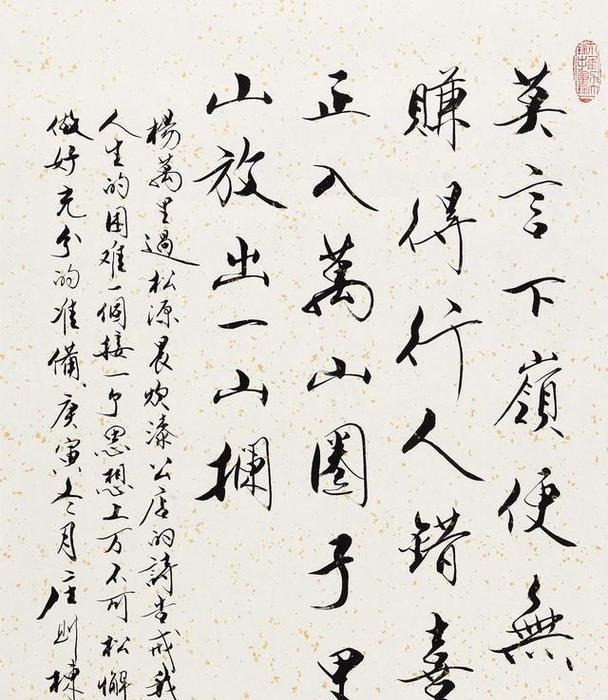 莫言下嶺便無
賺得行人錯喜
正入萬山圈子里
山放出一山攔
楊萬里過松源晨炊漆公店的詩告戒我
人生的困难一個接一个思想上万不可松懈
做好充分的准備庚寅冬月庄则栋